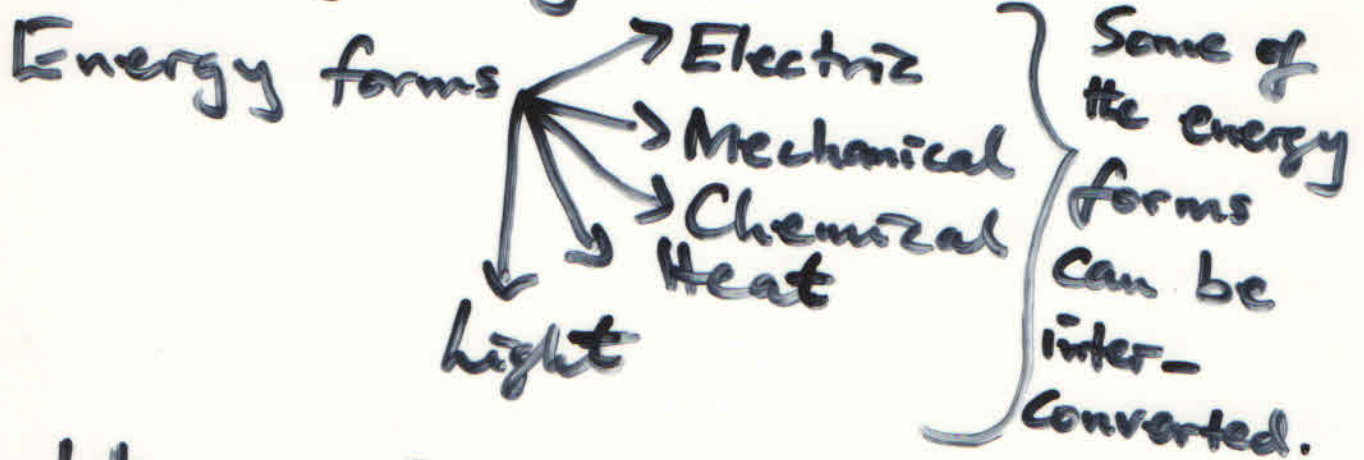 Energy forms
Electric
Mechanical
Chemical
Heat
Light
Some of
the energy
forms
can be
inter-
converted.